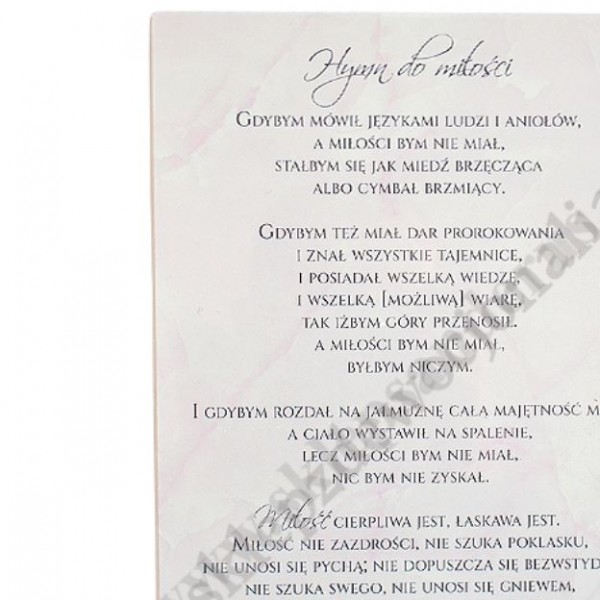 Hymn do miłości
Gdybym mówił językami ludzi i aniołów,
a miłości bym nie miał,
stałbym się jak miedź brzęcząca
albo cymbał brzmiący.
Gdybym też miał dar prorokowania
i znał wszystkie tajemnice,
i posiadał wszelką wiedzę,
i wszelką [możliwą] wiarę,
tak iżbym góry przenosił.
a miłości bym nie miał,
byłbym niczym.
I gdybym rozdał na jałmużnę całą majętność
a ciało wystawił na spalenie,
lecz miłości bym nie miał,
nic bym nie zyskał.
Miłość cierpliwa jest, łaskawa jest.
Miłość nie zazdrości, nie szuka poklasku,
nie unosi się pychą; nie dopuszcza się bezwstyd
nie szuka swego, nie unosi się gniewem,